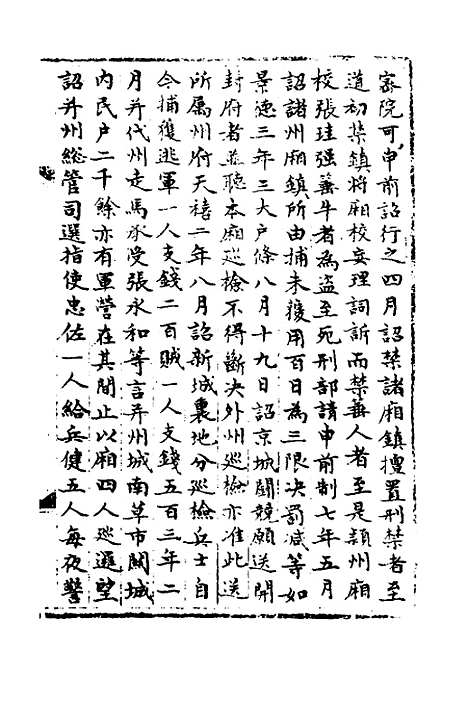 密院可申前詔行之四月詔禁諸廂鎮擅置刑禁者至
道初禁鎮將廂校妄理詞訴而禁蕃人者至是潁州廂
校張珪强蕃牛者為盜至死刑部請申前制七年五月
詔諸州廂鎮所由捕未獲用百日為三限决罰减等如
景德三年三大户條八月十九日詔京城鬭競願送開
封府者並聽本廂巡檢不得斷决外州巡檢亦准此送
所属州府天禧二年八月詔新城裏地分巡檢兵士自
今捕獲逃軍一人支錢二百賊一人支錢五百三年二
月并代州走馬承受張永和等言并州城南草市關城
内民户二千餘亦有軍營在其間止以廂四人巡邏望
詔并州總管司選指使忠佐一人給兵健五人每夜警